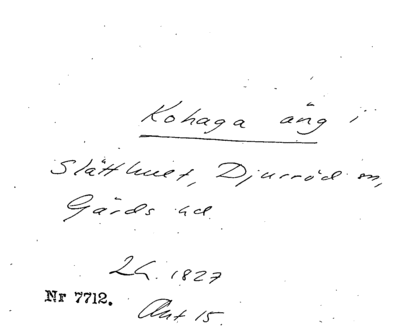 Kohaga äng i
Slätthult, Djurröd sn,
Gärds hd
Lh. 1827
Nr 7712.
Akt 15.